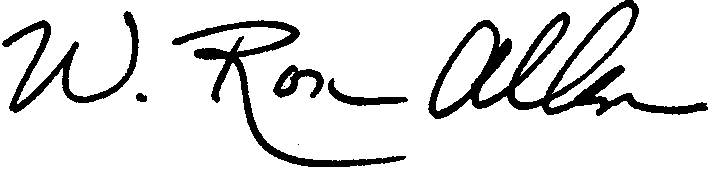 W. Ron Allen